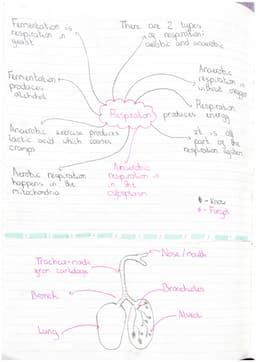 Fermentation is
respiration in
yeast
There are 2 types
of respiration:
aerobic and anaerobic
Anaerobic
respiration is
without oxygen
Fermentation
produces
alchohol
Respiration
produces energy
Respiration
It is all
part of the
respiration system
Anaerobic exercise produces
lactic acid which causes
cramps
Aerobic respiration
happens in the
mitochondria
Anaerobic
respiration is
in the
cytoplasm
- Know
- Forgot
Nose/mouth
Trachea - made
from cartilage
Bronchi
Bronchioles
Alveoli
Lung